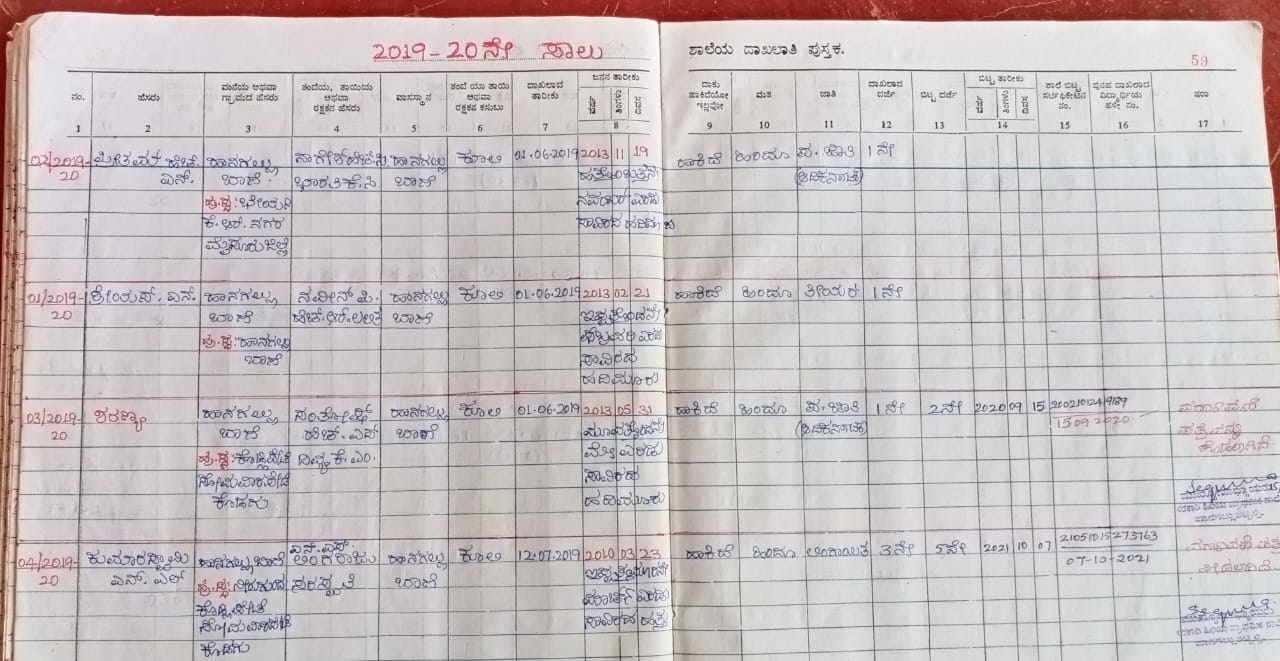 2019-20ನೇ ಸಾಲು
ಶಾಲೆಯ ದಾಖಲಾತಿ ಪುಸ್ತಕ.
59
ನಂ. ಹೆಸರು ಮನೆಯ ಅಥವಾ ಗ್ರಾಮದ ಹೆಸರು ತಂದೆಯ, ತಾಯಿಯ ಅಥವಾ ರಕ್ಷಕನ ಹೆಸರು ವಾಸಸ್ಥಾನ ತಂದೆ ಯಾ ತಾಯಿ ಅಥವಾ ರಕ್ಷಕನ ಕಸುಬು ದಾಖಲಾದ ತಾರೀಕು ಜನನ ತಾರೀಕು ವರ್ಷ ತಿಂಗಳು ದಿವಸ
ದಾಕು ಹಾಕಿದೆಯೋ ಇಲ್ಲವೋ ಮತ ಜಾತಿ ದಾಖಲಾದ ದರ್ಜೆ ಬಿಟ್ಟ ದರ್ಜೆ ಬಿಟ್ಟ ತಾರೀಕು ವರ್ಷ ತಿಂಗಳು ದಿವಸ ಶಾಲೆ ಬಿಟ್ಟ ಸರ್ಟಿಫಿಕೇಟಿನ ನಂ. ಪುನಹ ದಾಖಲಾದ ವಿದ್ಯಾರ್ಥಿಯ ಹಳೇ ನಂ. ಷರಾ
1 2 3 4 5 6 7 8 9 10 11 12 13 14 15 16 17
02/2019- ಹೆಚ್. ಹಾನಗಲ್ಲು ಹಾನಗಲ್ಲು ಕೂಲಿ 01-06-2019 2013 11 19 ಹಾಕಿದೆ ಹಿಂದೂ ಪ. ಜಾತಿ 1ನೇ
20 ಎನ್. ಬಾಣೆ. ಭಾರತಿ ಕೆ.ಸಿ ಬಾಣೆ ಹತ್ತೊಂಬತ್ತನೇ (ಆದಿಕರ್ನಾಟಕ)
ಹು.ಸ್ಥ: ನವಂಬರ್ ಎರಡು
ಕೆ. ಆರ್. ನಗರ ಸಾವಿರದ ಹದಿಮೂರು
ಮೈಸೂರು ಜಿಲ್ಲೆ
01/2019- ಶ್ರೇಯಸ್. ಎನ್. ಹಾನಗಲ್ಲು ನವೀನ್ ಪಿ. ಹಾನಗಲ್ಲು ಕೂಲಿ 01-06-2019 2013 02 21 ಹಾಕಿದೆ ಹಿಂದೂ ತೀಯರ 1ನೇ
20 ಬಾಣೆ ಹೆಚ್.ಆರ್.ಲಲಿತ ಬಾಣೆ ಇಪ್ಪತ್ತೊಂದನೇ
ಹು.ಸ್ಥ: ಹಾನಗಲ್ಲು ಫೆಬ್ರವರಿ ಎರಡು
ಬಾಣೆ ಸಾವಿರದ
ಹದಿಮೂರು
03/2019- ಶರಣ್ಯ ಹಾನಗಲ್ಲು ಸಂತೋಷ್ ಹಾನಗಲ್ಲು ಕೂಲಿ 01-06-2019 2013 05 31 ಹಾಕಿದೆ ಹಿಂದೂ ಪ. ಜಾತಿ 1ನೇ 2ನೇ 2020 09 15 ವರ್ಗಾವಣೆ
20 ಬಾಣೆ ಹೆಚ್. ಎಸ್ ಬಾಣೆ ಮೂವತ್ತೊಂದನೇ (ಆದಿಕರ್ನಾಟಕ) 15 09 2020 ಪತ್ರವನ್ನು
ಹು.ಸ್ಥ: ಕೊಡ್ಲಿಪೇಟೆ ದಿವ್ಯ ಕೆ. ಎಂ. ಮೇ ಎರಡು ಕೊಡಲಾಗಿದೆ
ಸೋಮವಾರಪೇಟೆ ಸಾವಿರದ
ಕೊಡಗು ಹದಿಮೂರು
04/2019- ಕುಮಾರಸ್ವಾಮಿ ಹಾನಗಲ್ಲು ಬಾಣೆ ಎನ್.ಎಸ್. ಲಿಂಗರಾಜು ಹಾನಗಲ್ಲು ಕೂಲಿ 12.07.2019 2010 03 23 ಹಾಕಿದೆ ಹಿಂದೂ ಲಿಂಗಾಯಿತ 3ನೇ 5ನೇ 2021 10 07 21051015273763 ವರ್ಗಾವಣೆ ಪತ್ರ
20 ಎನ್. ಎಲ್ ಹು.ಸ್ಥ: ಸರಸ್ವತಿ ಬಾಣೆ ಇಪ್ಪತ್ತಮೂರನೇ 07-10-2021 ನೀಡಲಾಗಿದೆ.
ಕೊಡ್ಲಿಪೇಟೆ ಮಾರ್ಚ್ ಎರಡು
ಸೋಮವಾರಪೇಟೆ ಸಾವಿರದ ಹತ್ತು
ಕೊಡಗು